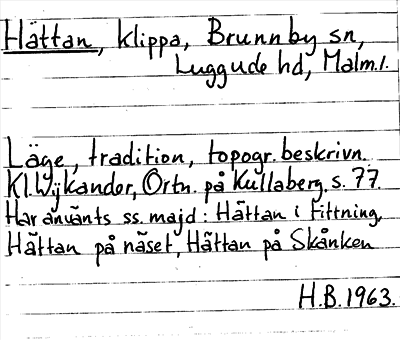 Hättan, klippa, Brunnby sn,
Luggude hd, Malm.l.
Läge, tradition, topogr. beskrivn.
Kl. Wijkander, Ortn. på Kullaberg, s. 77.
Har använts ss. majd: Hättan i Fittning,
Hättan på näset, Hättan på Skånken
H.B. 1963.